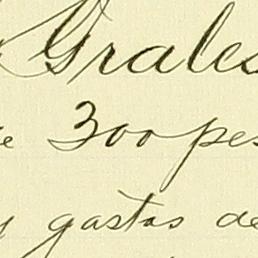 Grales
e 300 pes
y gastos de